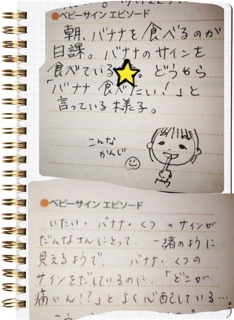 ●ベビーサイン エピソード
朝、バナナを食べるのが
日課。バナナのサインを
食べている 。どうやら
バナナ 食べたい!」と
言っている様子。
こんな
かんじ
●ベビーサイン エピソード
いたい・バナナ・くつ のサインが
だんなさんにとって、一緒のように
見えるようで バナナ・くつの
サインをだしているのに、「どこが
痛いん!?」とよく心配している…